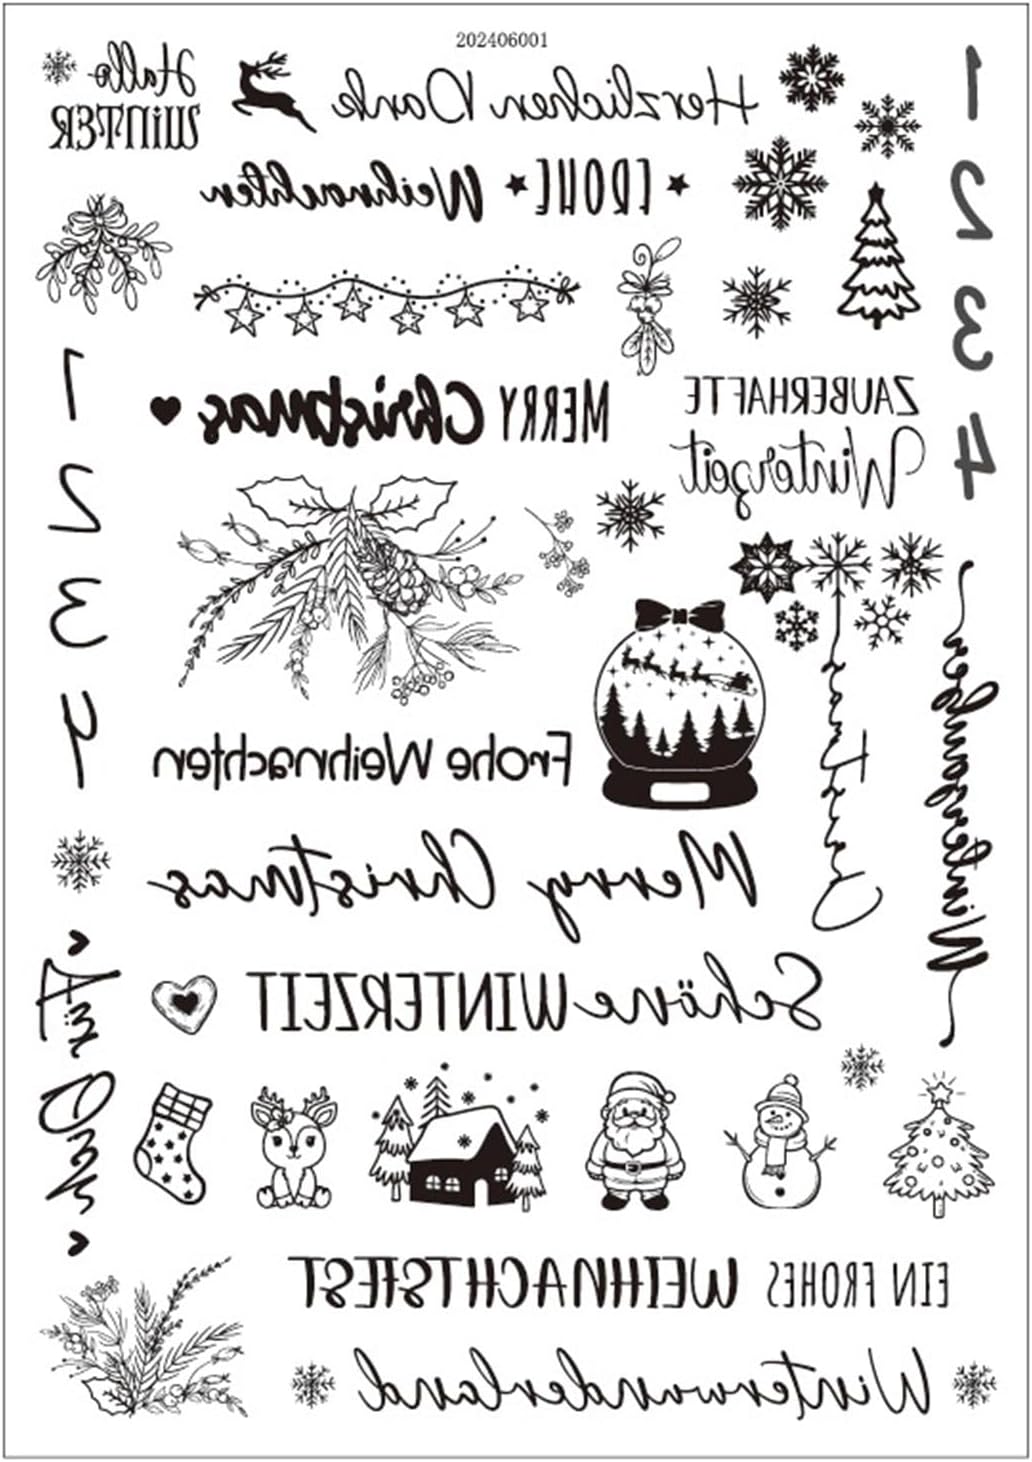 202406001
Hallo
WINTER
Herzlichen Dank
FROHE Weihnachten
MERRY Christmas
ZAUBERHAFTE
Winterzeit
1
2
3
4
1
2
3
4
Frohe Weihnachten
Merry Christmas
Schöne WINTERZEIT
EIN FROHES WEIHNACHTSFEST
Winterwunderland